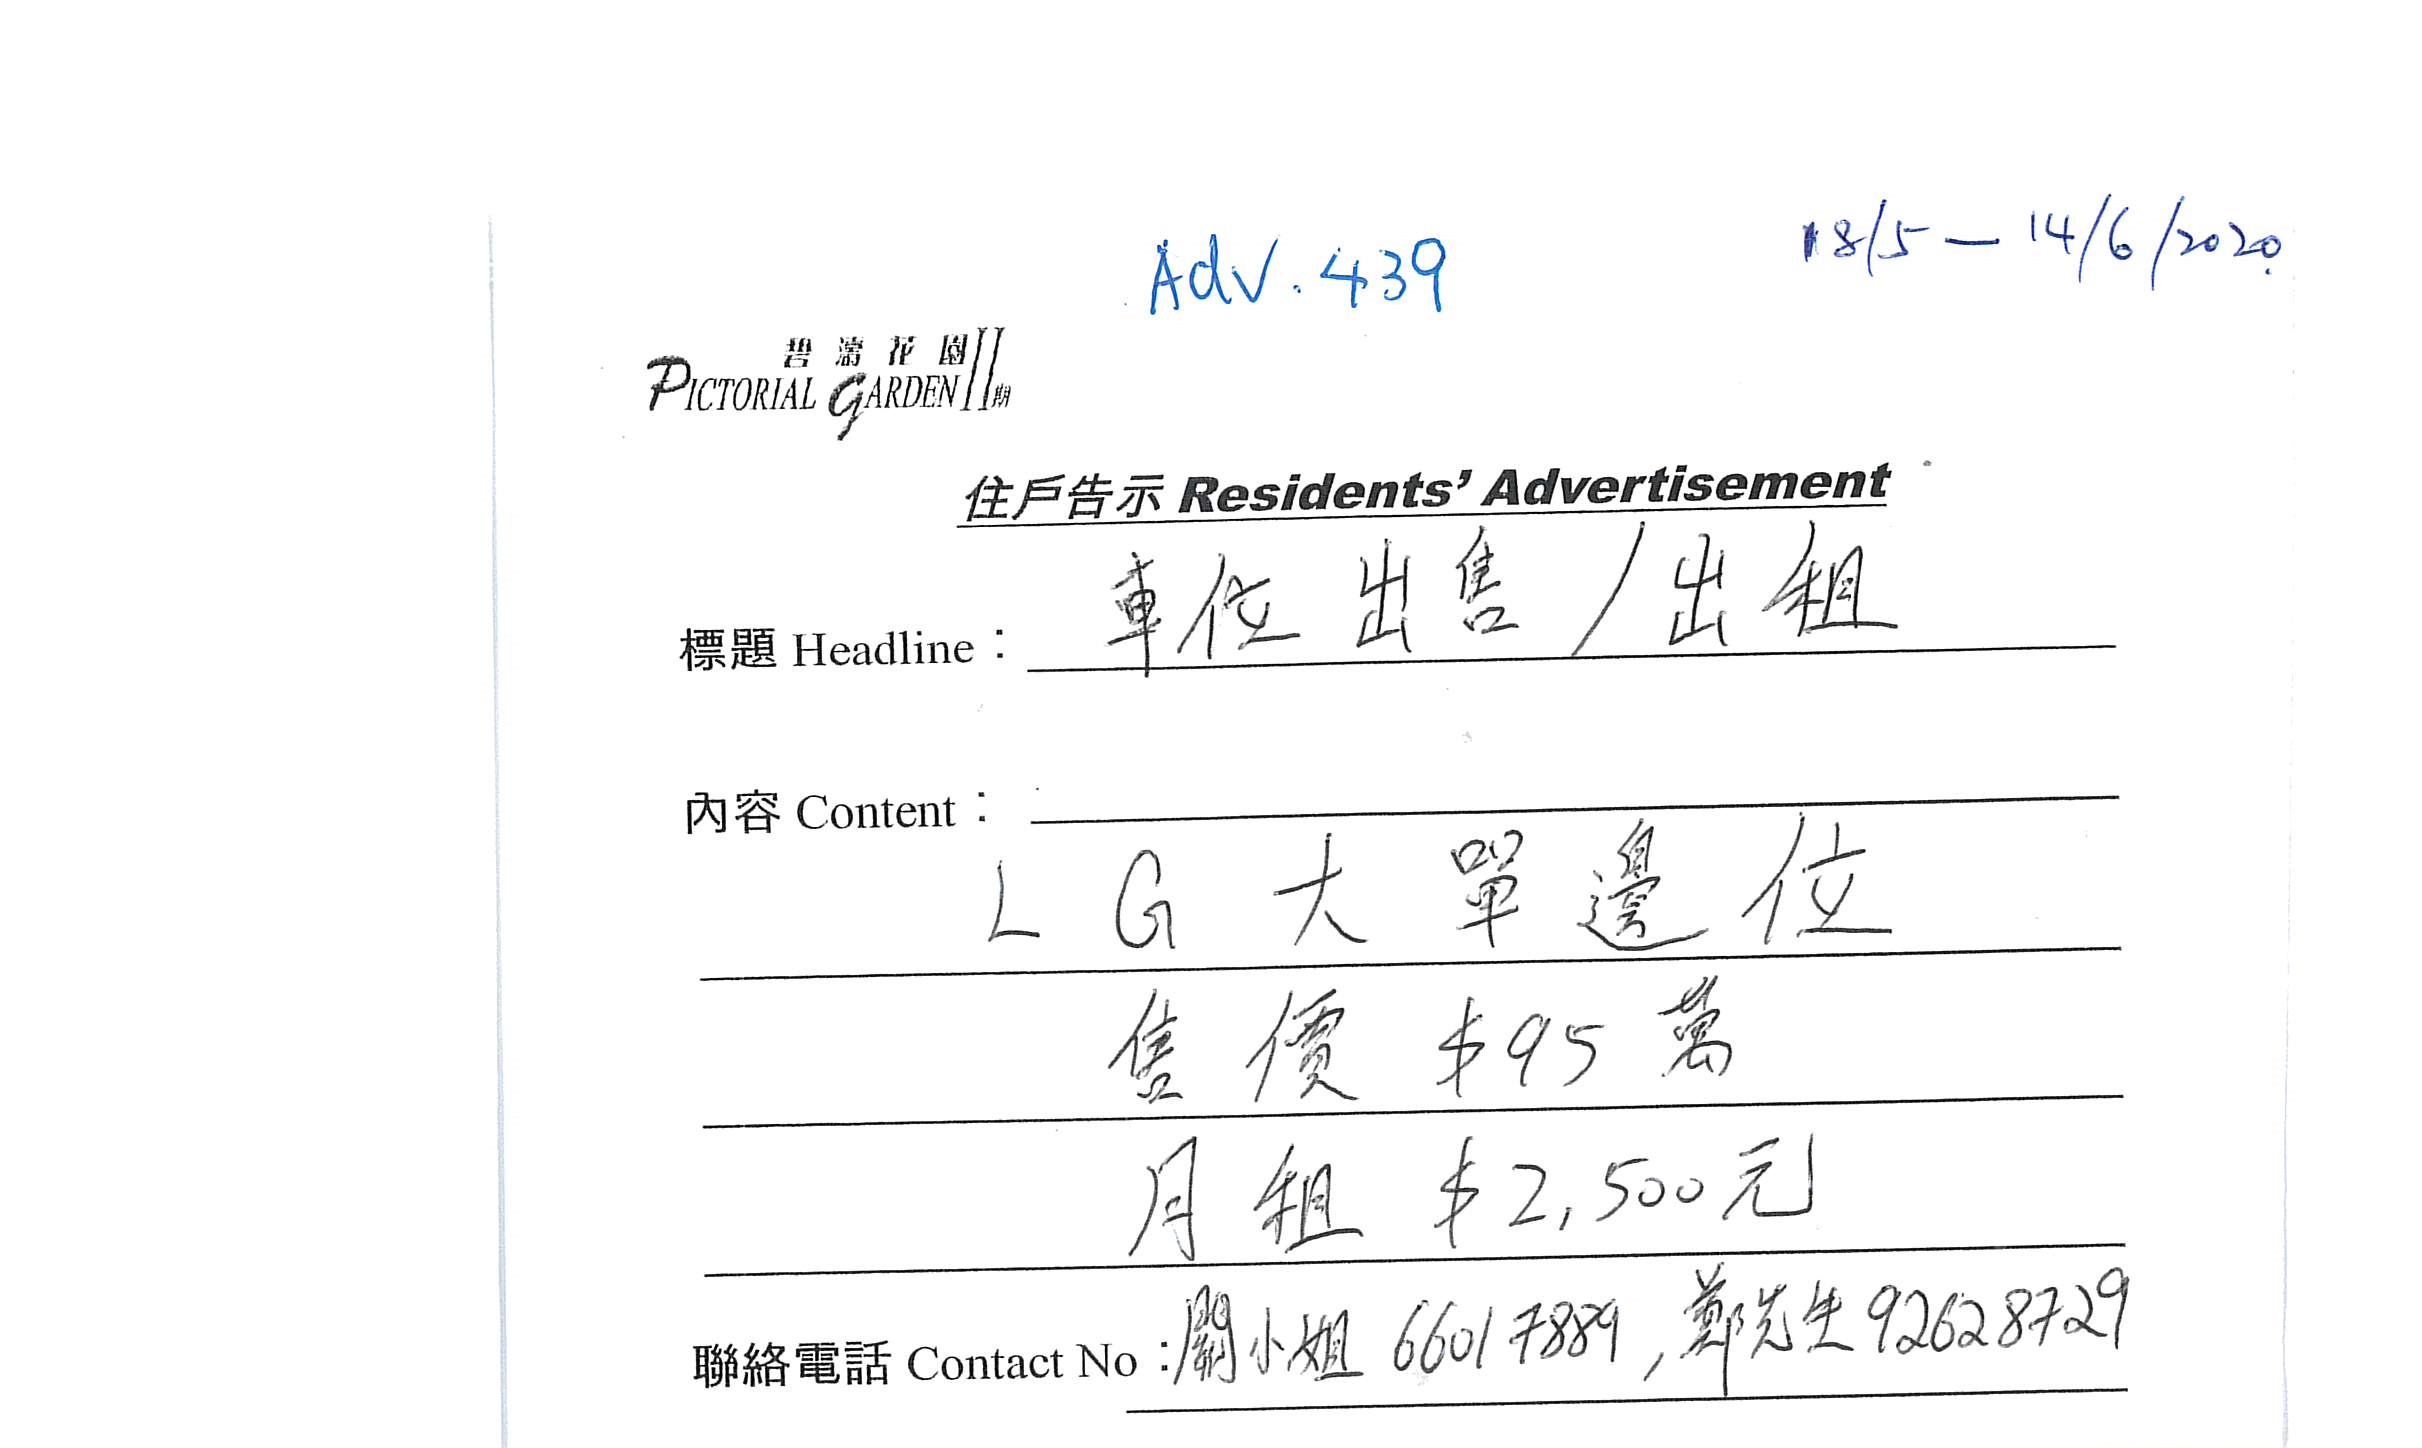 18/5 — 14/6/2020.
Adv. 439
碧濤花園II期
PICTORIAL GARDEN
住戶告示 Residents' Advertisement
標題 Headline： 車位出售/出租
內容 Content：
LG大單邊位
售價 $95萬
月租 $2,500元
聯絡電話 Contact No：關小姐 66017889, 鄭先生 92628729